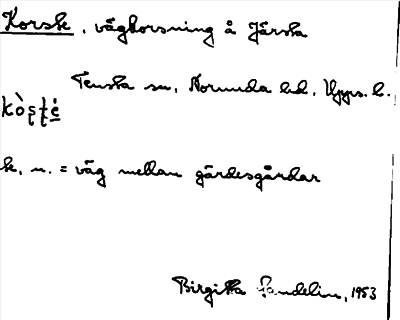 Korste, vägkorsning å Järsta
Tensta sn, Norunda hd, Upps. l.
kòște̱
te, n. = väg mellan gärdesgårdar
Birgitta Sandelin, 1953